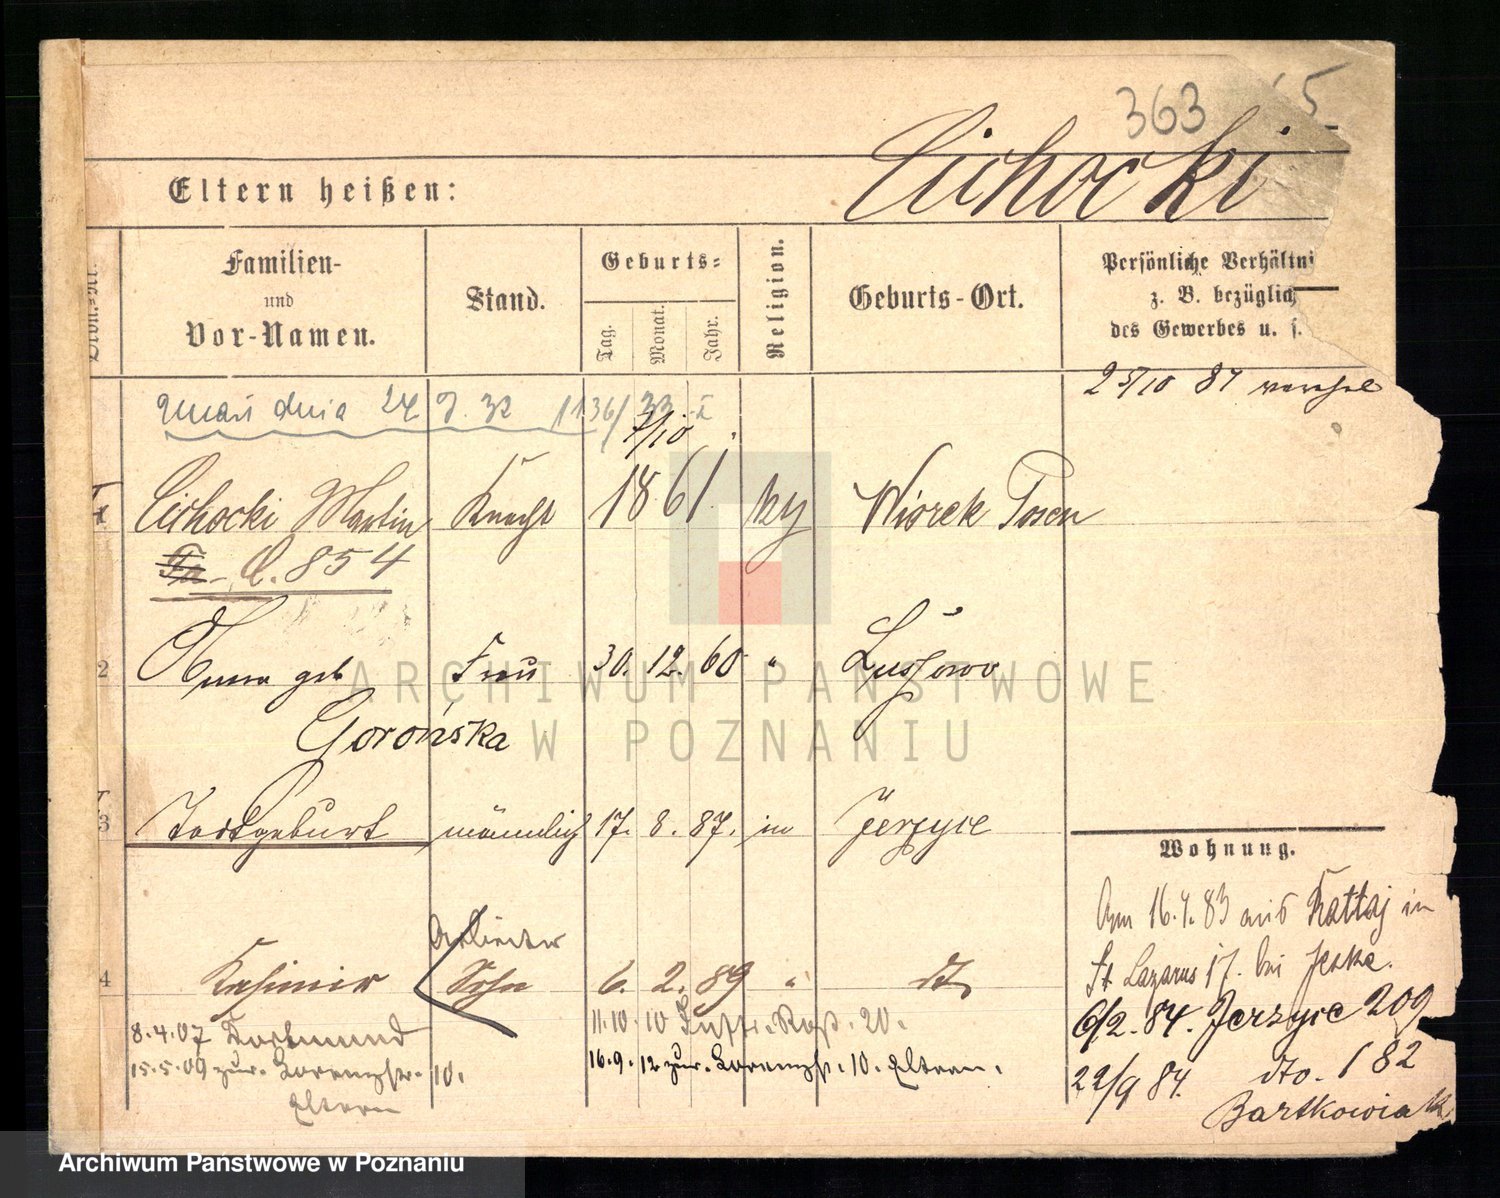 363 5
Cichocki
Eltern heißen:
Familien-
und
Vor-Namen.
Stand.
Geburts-
Tag.
Monat.
Jahr.
Religion.
Geburts-Ort.
Persönliche Verhältni
z. B. bezüglich
des Gewerbes u. s.
25/10 87
dnia 24 32
7/10
Cichocki Martin Knecht 1861. Posen
C. 854
2 geb Frau 30. 12. 60 " Lussowo
Gorońska
3 Todtgeburt männlich 17. 8. 87. in Jerzyce
Wohnung.
16.4.83 aus in
4 Kasimir Sohn 6. 2. 89 " dto
St Lazarus 17. bei Jeske.
6/2. 84. Jerzyce 209
8.4.07 Dortmund
11.10.10 20.
15.5.09 zur. Lorenzstr. 10.
16.9.12 zur. Lorenzstr. 10. Eltern.
Eltern
22/9 84. dto. 182
Bartkowiak
ARCHIWUM PAŃSTWOWE
W POZNANIU
Archiwum Państwowe w Poznaniu